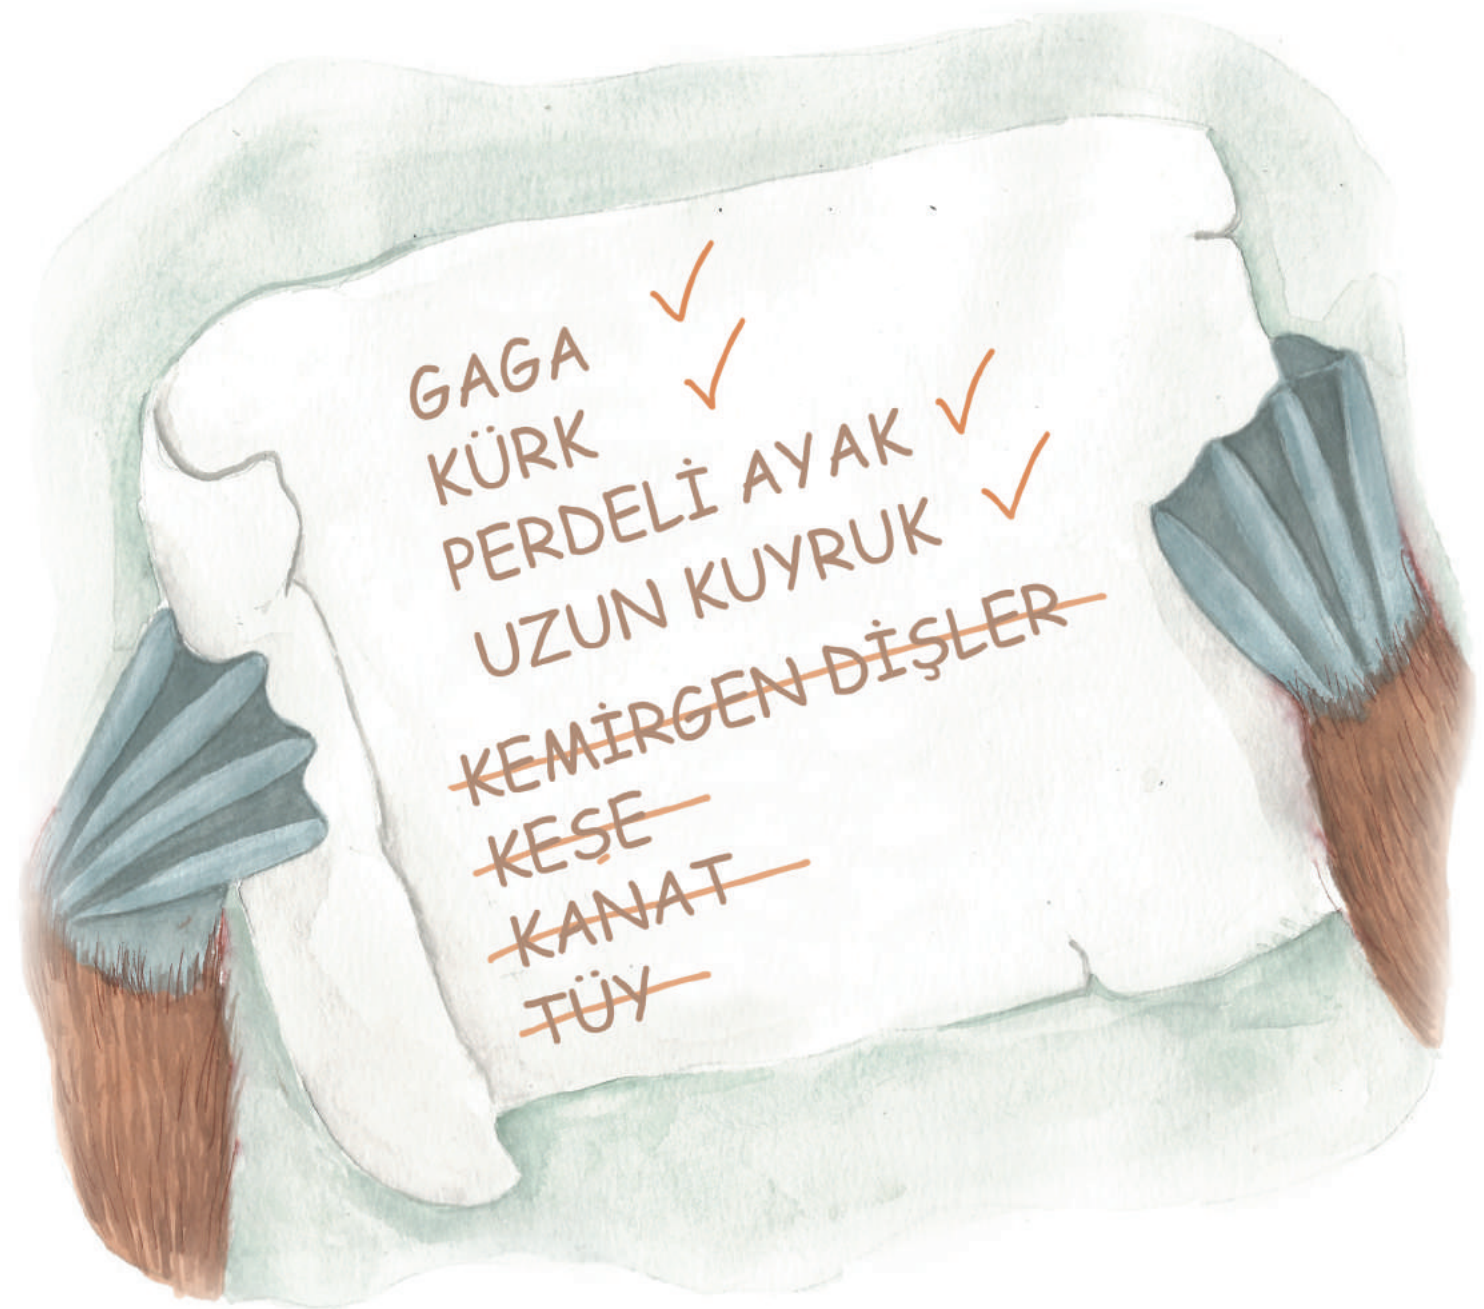 GAGA
KÜRK
PERDELİ AYAK
UZUN KUYRUK
KEMİRGEN DİŞLER
KEŞE
KANAT
TÜY